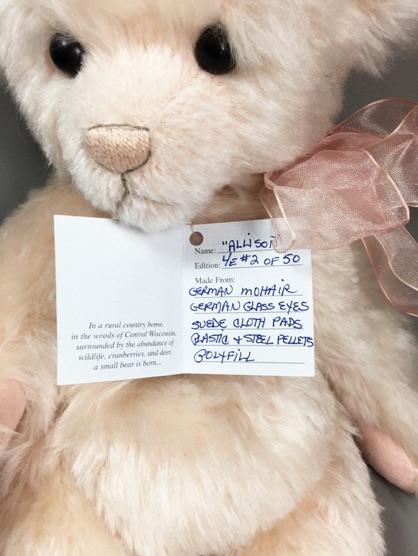 In a rural country home,
in the woods of Central Wisconsin,
surrounded by the abundance of
wildlife, cranberries, and deer
a small bear is born...
Name: "ALLISON"
Edition: LE #2 OF 50
Made From:
GERMAN MOHAIR
GERMAN GLASS EYES
SUEDE CLOTH PADS
PLASTIC + STEEL PELLETS
POLYFILL